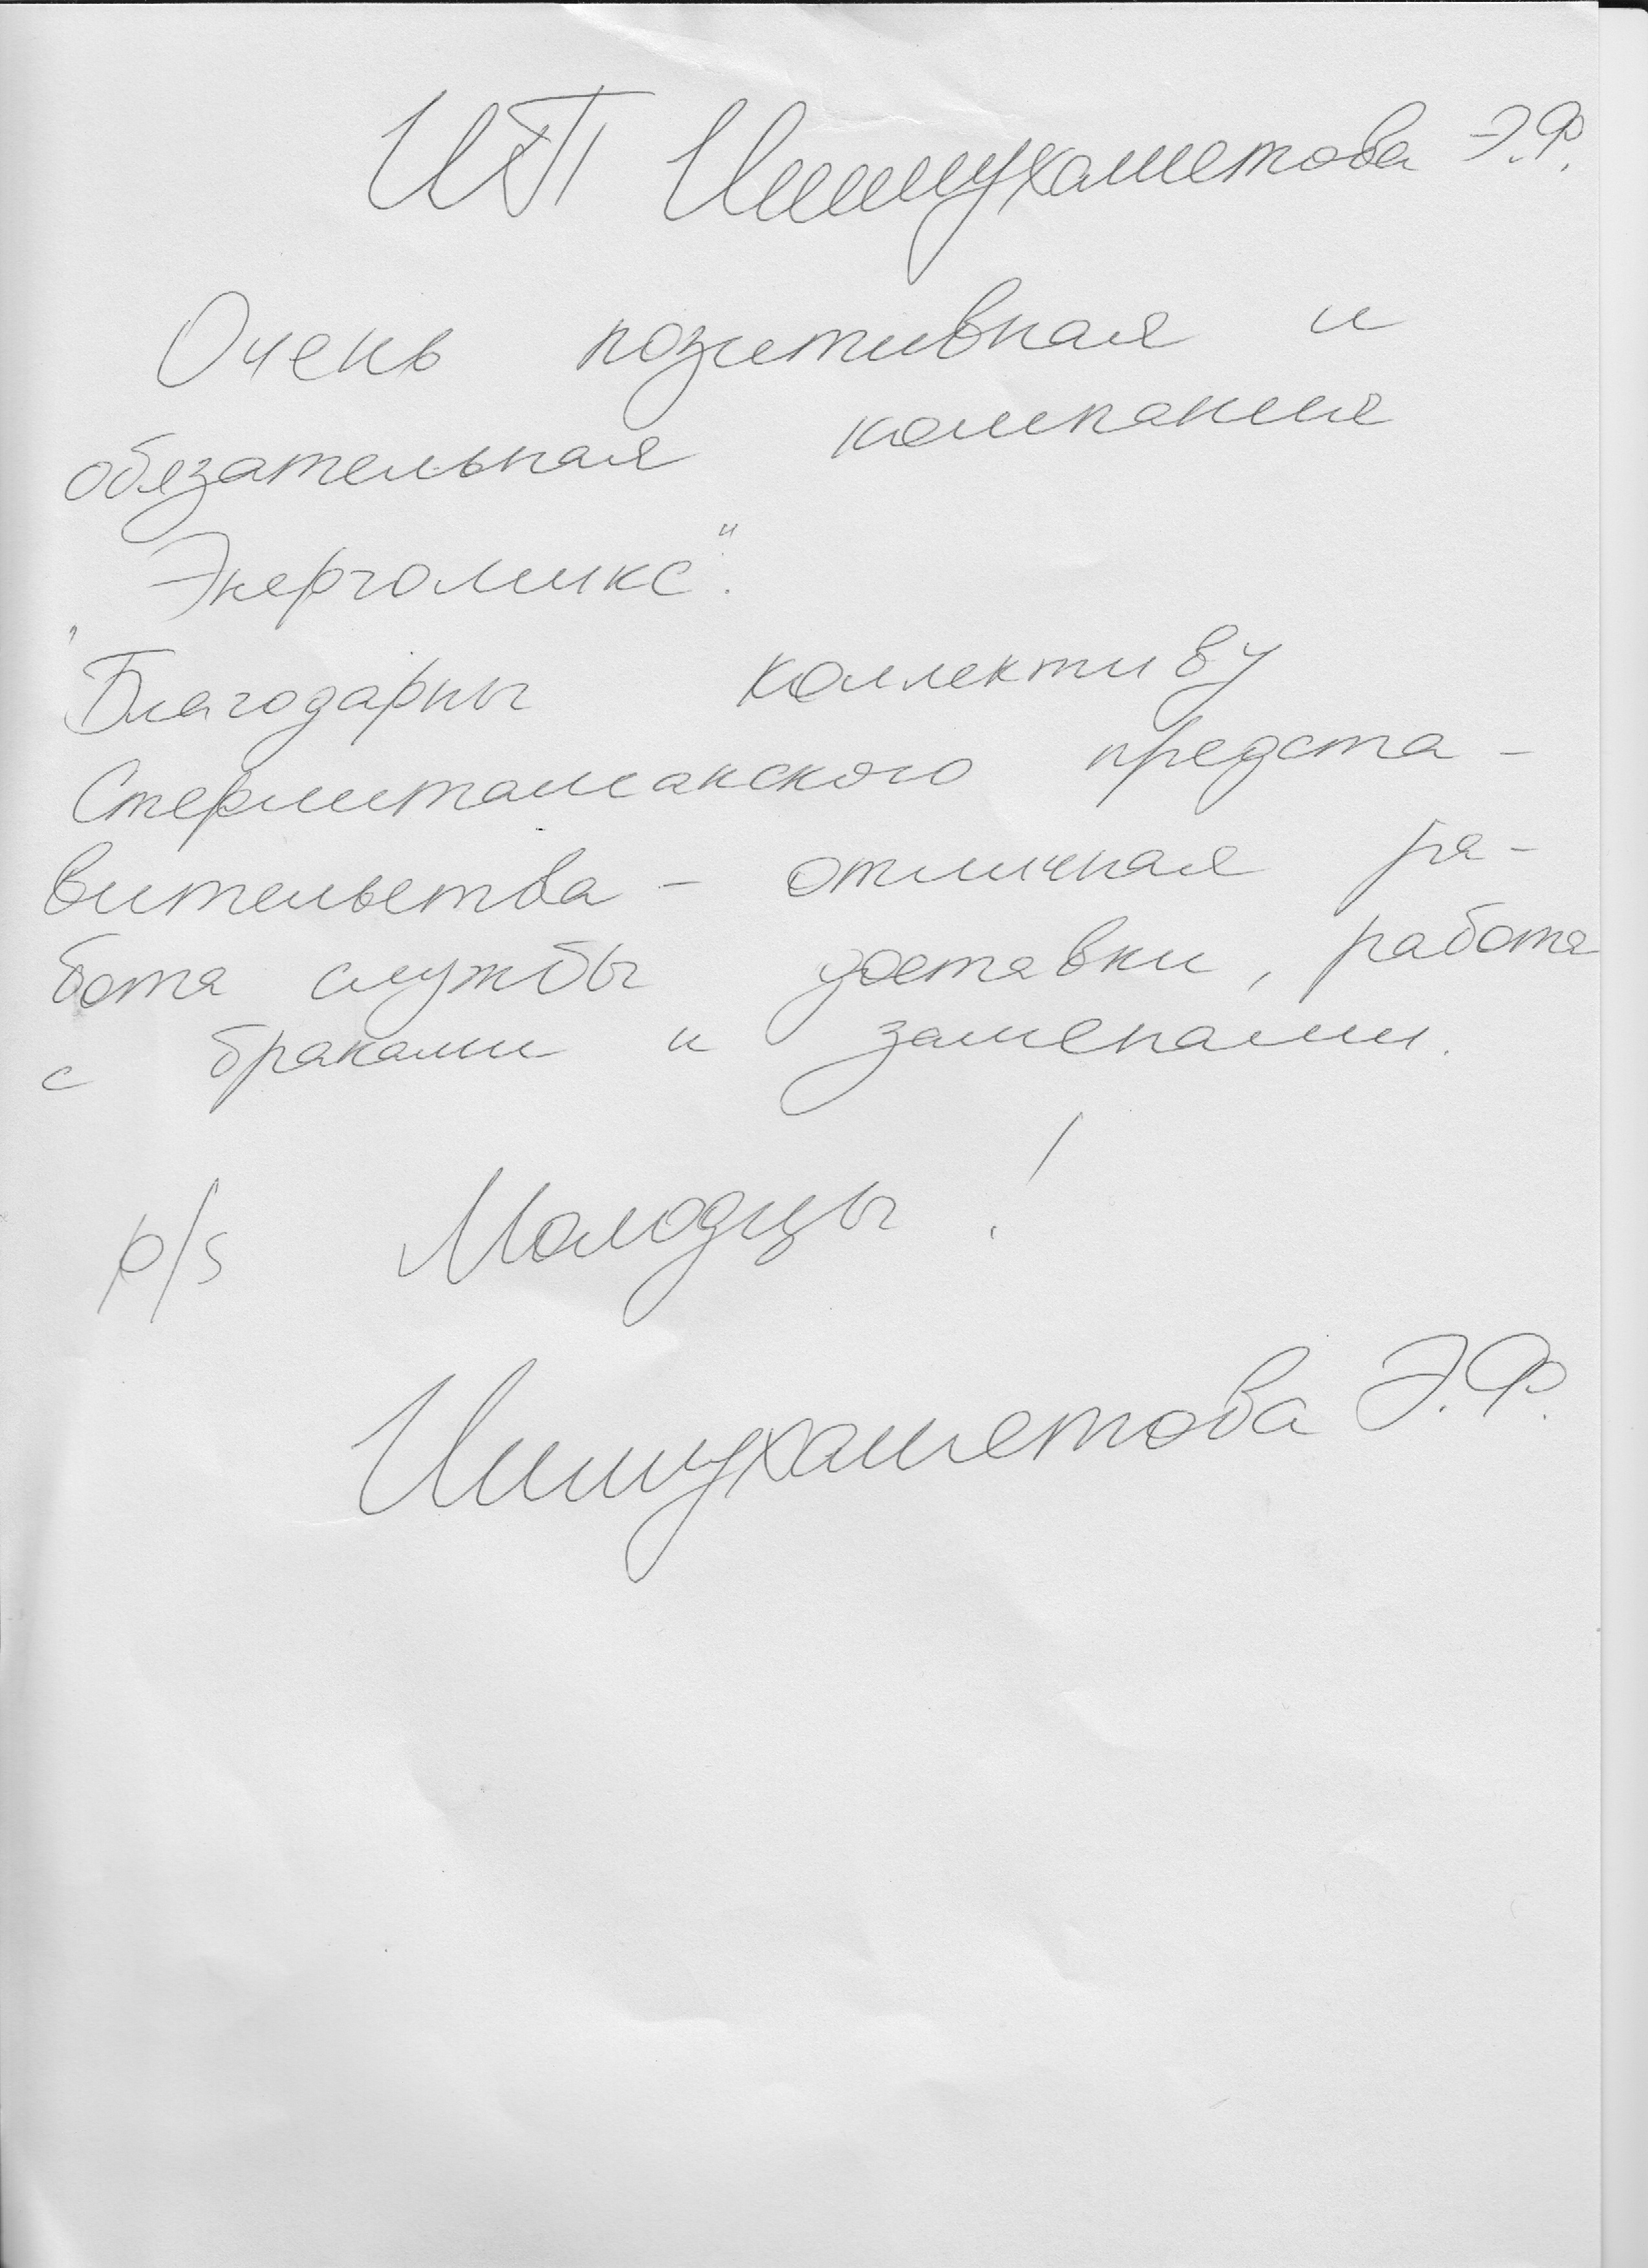 ИП Ишмухаметова Э.Ф.
Очень позитивная и
обязательная компания
"Энергомикс".
Благодарны коллективу
Стерлитамакского предста-
вительства - отличная ра-
бота службы доставки, работа
с браками и заменами.
p/s Молодцы!
Ишмухаметова Э.Ф.